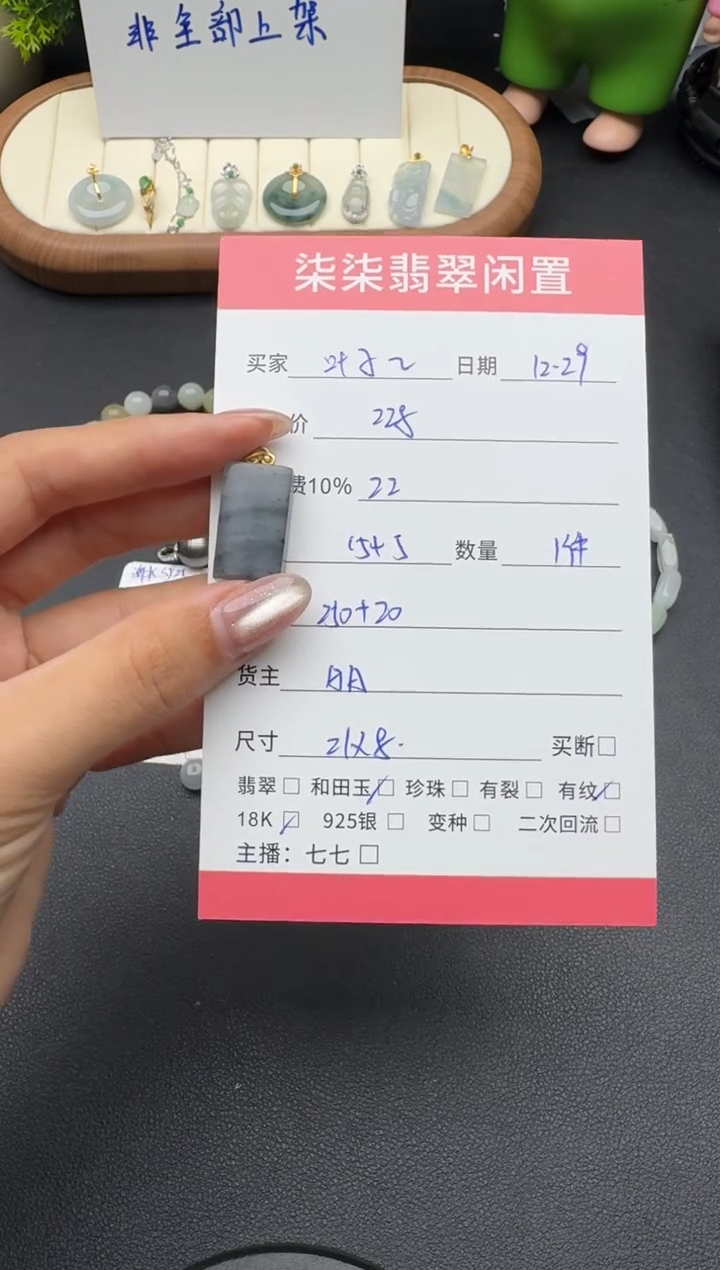 非全部上架
柒柒翡翠闲置
买家 叶子乙 日期 12-29
价 228
费10% 22
15+5 数量 1件
210+20
货主 AA
尺寸 21×8.
买断
翡翠 和田玉 珍珠 有裂 有纹
18K 925银 变种 二次回流
主播：七七